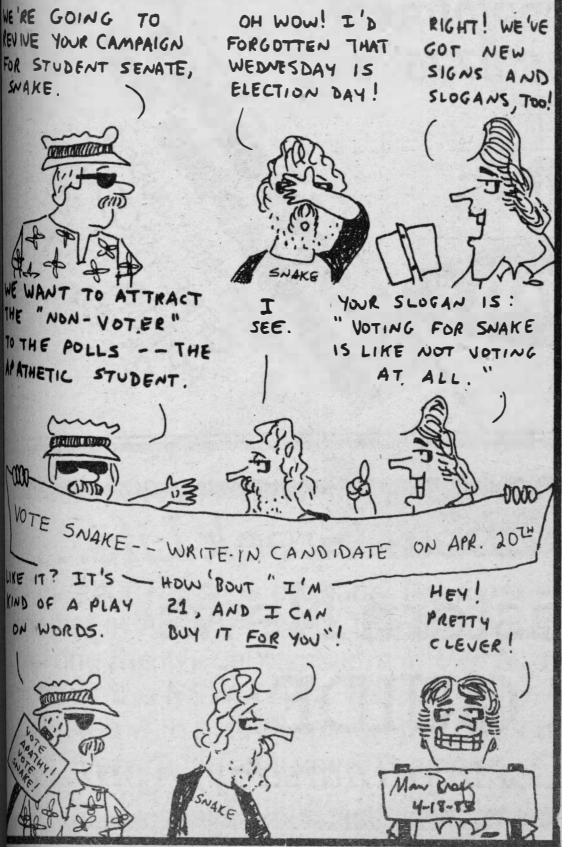 WE'RE GOING TO
REVIVE YOUR CAMPAIGN
FOR STUDENT SENATE,
SNAKE.
OH WOW! I'D
FORGOTTEN THAT
WEDNESDAY IS
ELECTION DAY!
RIGHT! WE'VE
GOT NEW
SIGNS AND
SLOGANS, TOO!
SNAKE
WE WANT TO ATTRACT
THE "NON-VOTER"
TO THE POLLS -- THE
APATHETIC STUDENT.
I
SEE.
YOUR SLOGAN IS:
"VOTING FOR SNAKE
IS LIKE NOT VOTING
AT ALL."
VOTE SNAKE -- WRITE-IN CANDIDATE ON APR. 20TH
LIKE IT? IT'S
KIND OF A PLAY
ON WORDS.
HOW 'BOUT "I'M
21, AND I CAN
BUY IT FOR YOU"!
HEY!
PRETTY
CLEVER!
VOTE
APATHY!
VOTE
SNAKE!
SNAKE
4-18-83